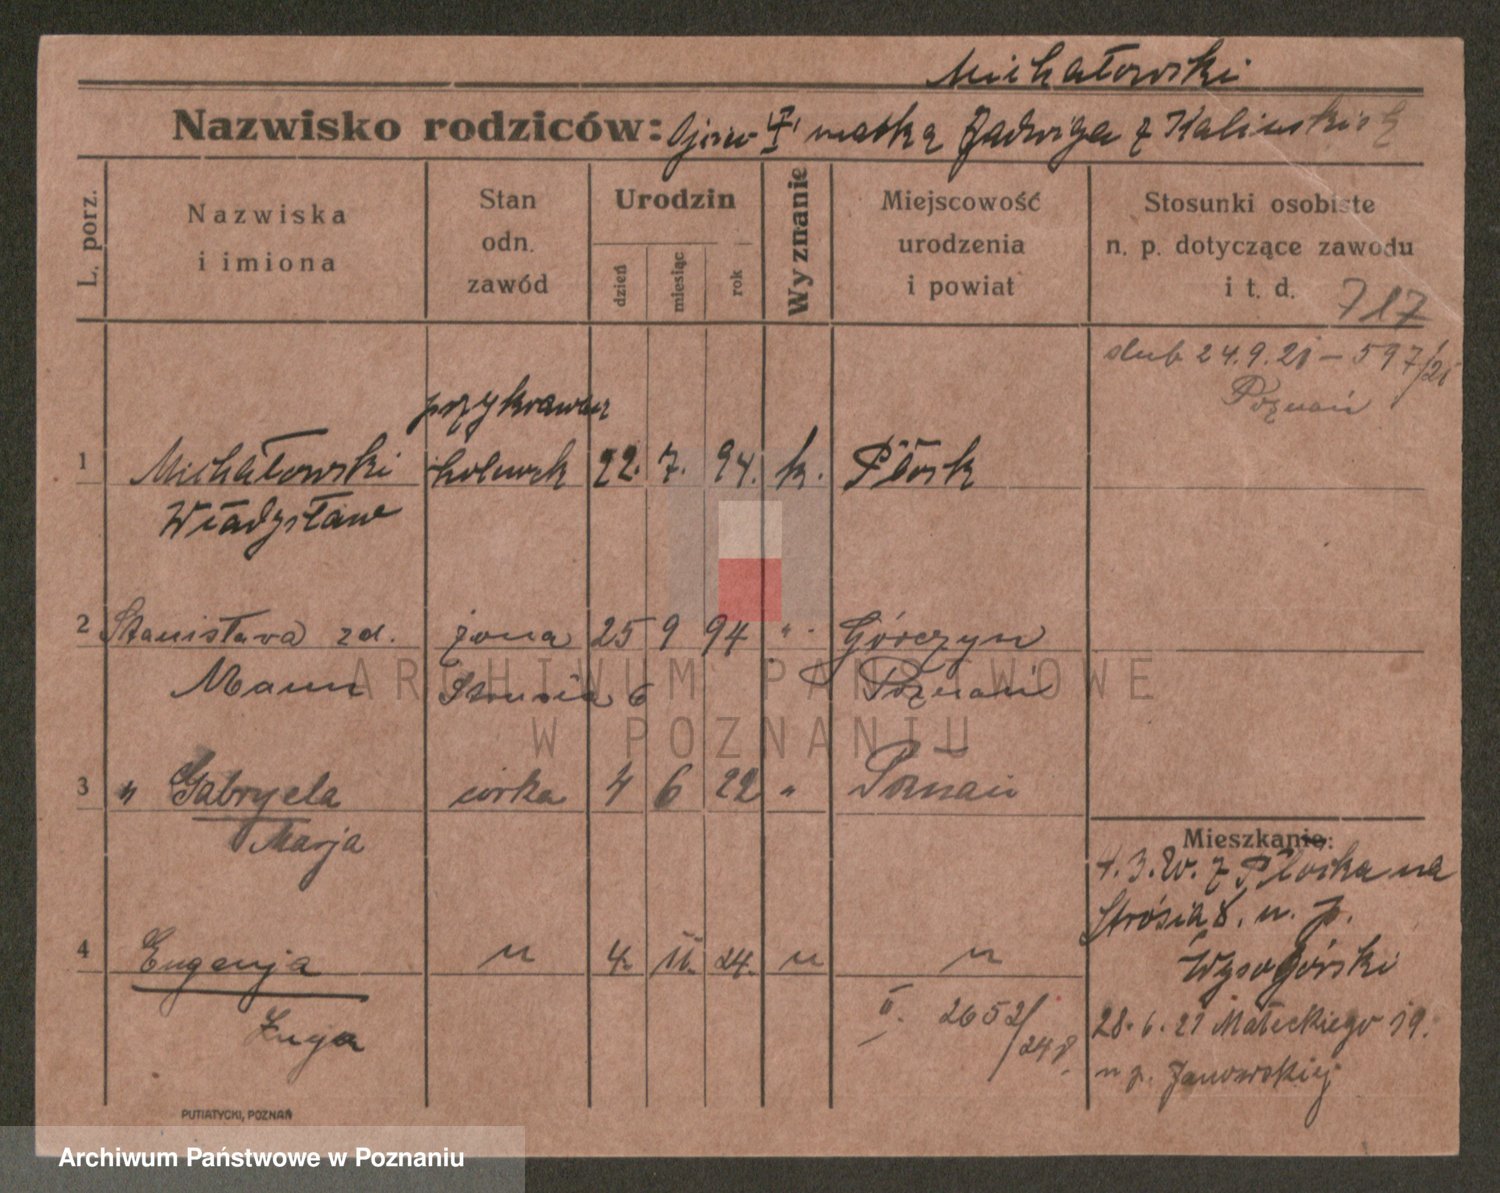 Michałowski
Nazwisko rodziców: Ojciec matka Jadwiga z Kalinskich
L. porz.
Nazwiska i imiona
Stan odn. zawód
Urodzin
dzień
miesiąc
rok
Wyznanie
Miejscowość urodzenia i powiat
Stosunki osobiste n. p. dotyczące zawodu i t. d.
717
slub 24.9.21 – 597/21
Poznań
przykrawacz
1 Michałowski 22. 7. 94. k. Płock
Władysław
2 Stanisława zd. żona 25 9 94 " Górczyn
Mann Strusia 6 Poznań
3 " Gabryela córka 4 6 22 " Poznań
Marja
Mieszkanie:
4.3.20. z Płocka na
Strusia 8. u. p.
4 Eugenja " 4. 11. 24. " "
Wysogórski
II. 2652/24
28.6.21 Małeckiego 19.
u p. Janowskiej
PUTIATYCKI, POZNAŃ
ARCHIWUM PAŃSTWOWE
W POZNANIU
Archiwum Państwowe w Poznaniu